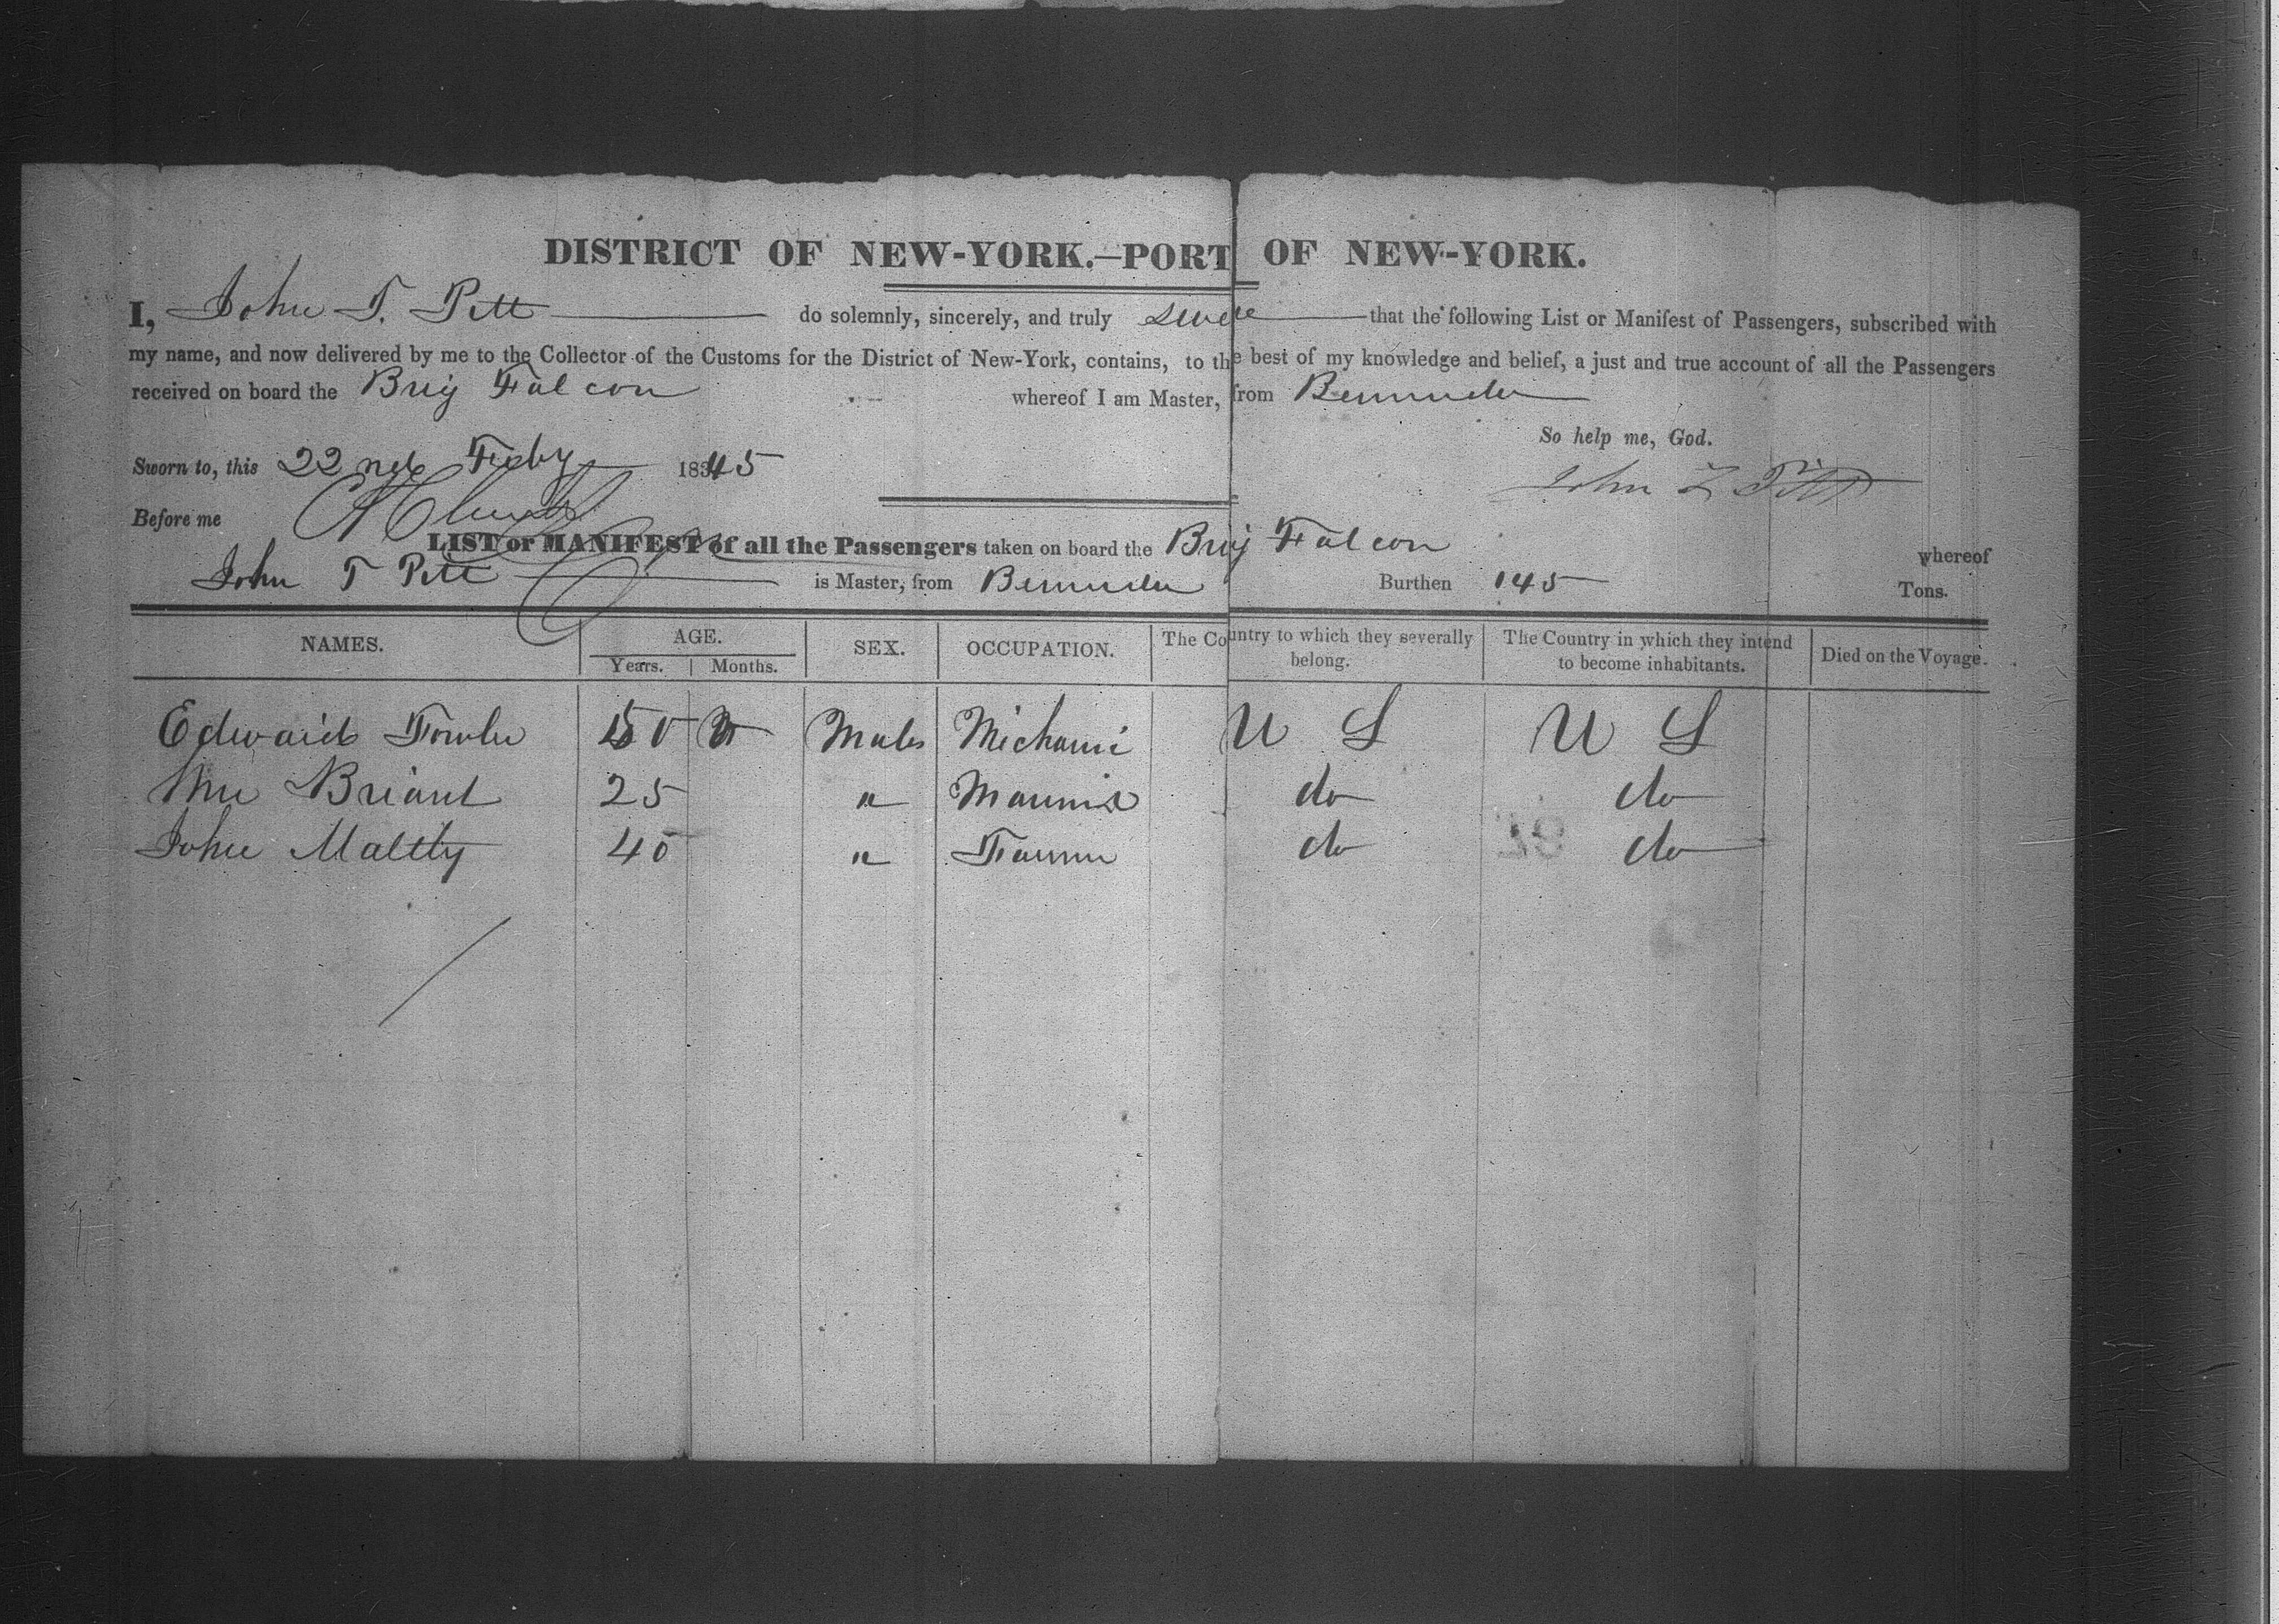 DISTRICT OF NEW-YORK.—PORT OF NEW-YORK.
I, John T. Pitt do solemnly, sincerely, and truly swear that the following List or Manifest of Passengers, subscribed with
my name, and now delivered by me to the Collector of the Customs for the District of New-York, contains, to the best of my knowledge and belief, a just and true account of all the Passengers
received on board the Brig Falcon whereof I am Master, from Bermuda
So help me, God.
Sworn to, this 22nd Feby 1845
John T Pitt
Before me
LIST or MANIFEST of all the Passengers taken on board the Brig Falcon whereof
John T Pitt is Master, from Bermuda Burthen 145 Tons.
NAMES. AGE. SEX. OCCUPATION. The Country to which they severally belong. The Country in which they intend to become inhabitants. Died on the Voyage.
Years. Months.
Edward Fowler 50 Males Mechanic U S U S
Wm Briant 25 " Marine do do
John Maltby 40 " Farmer do do